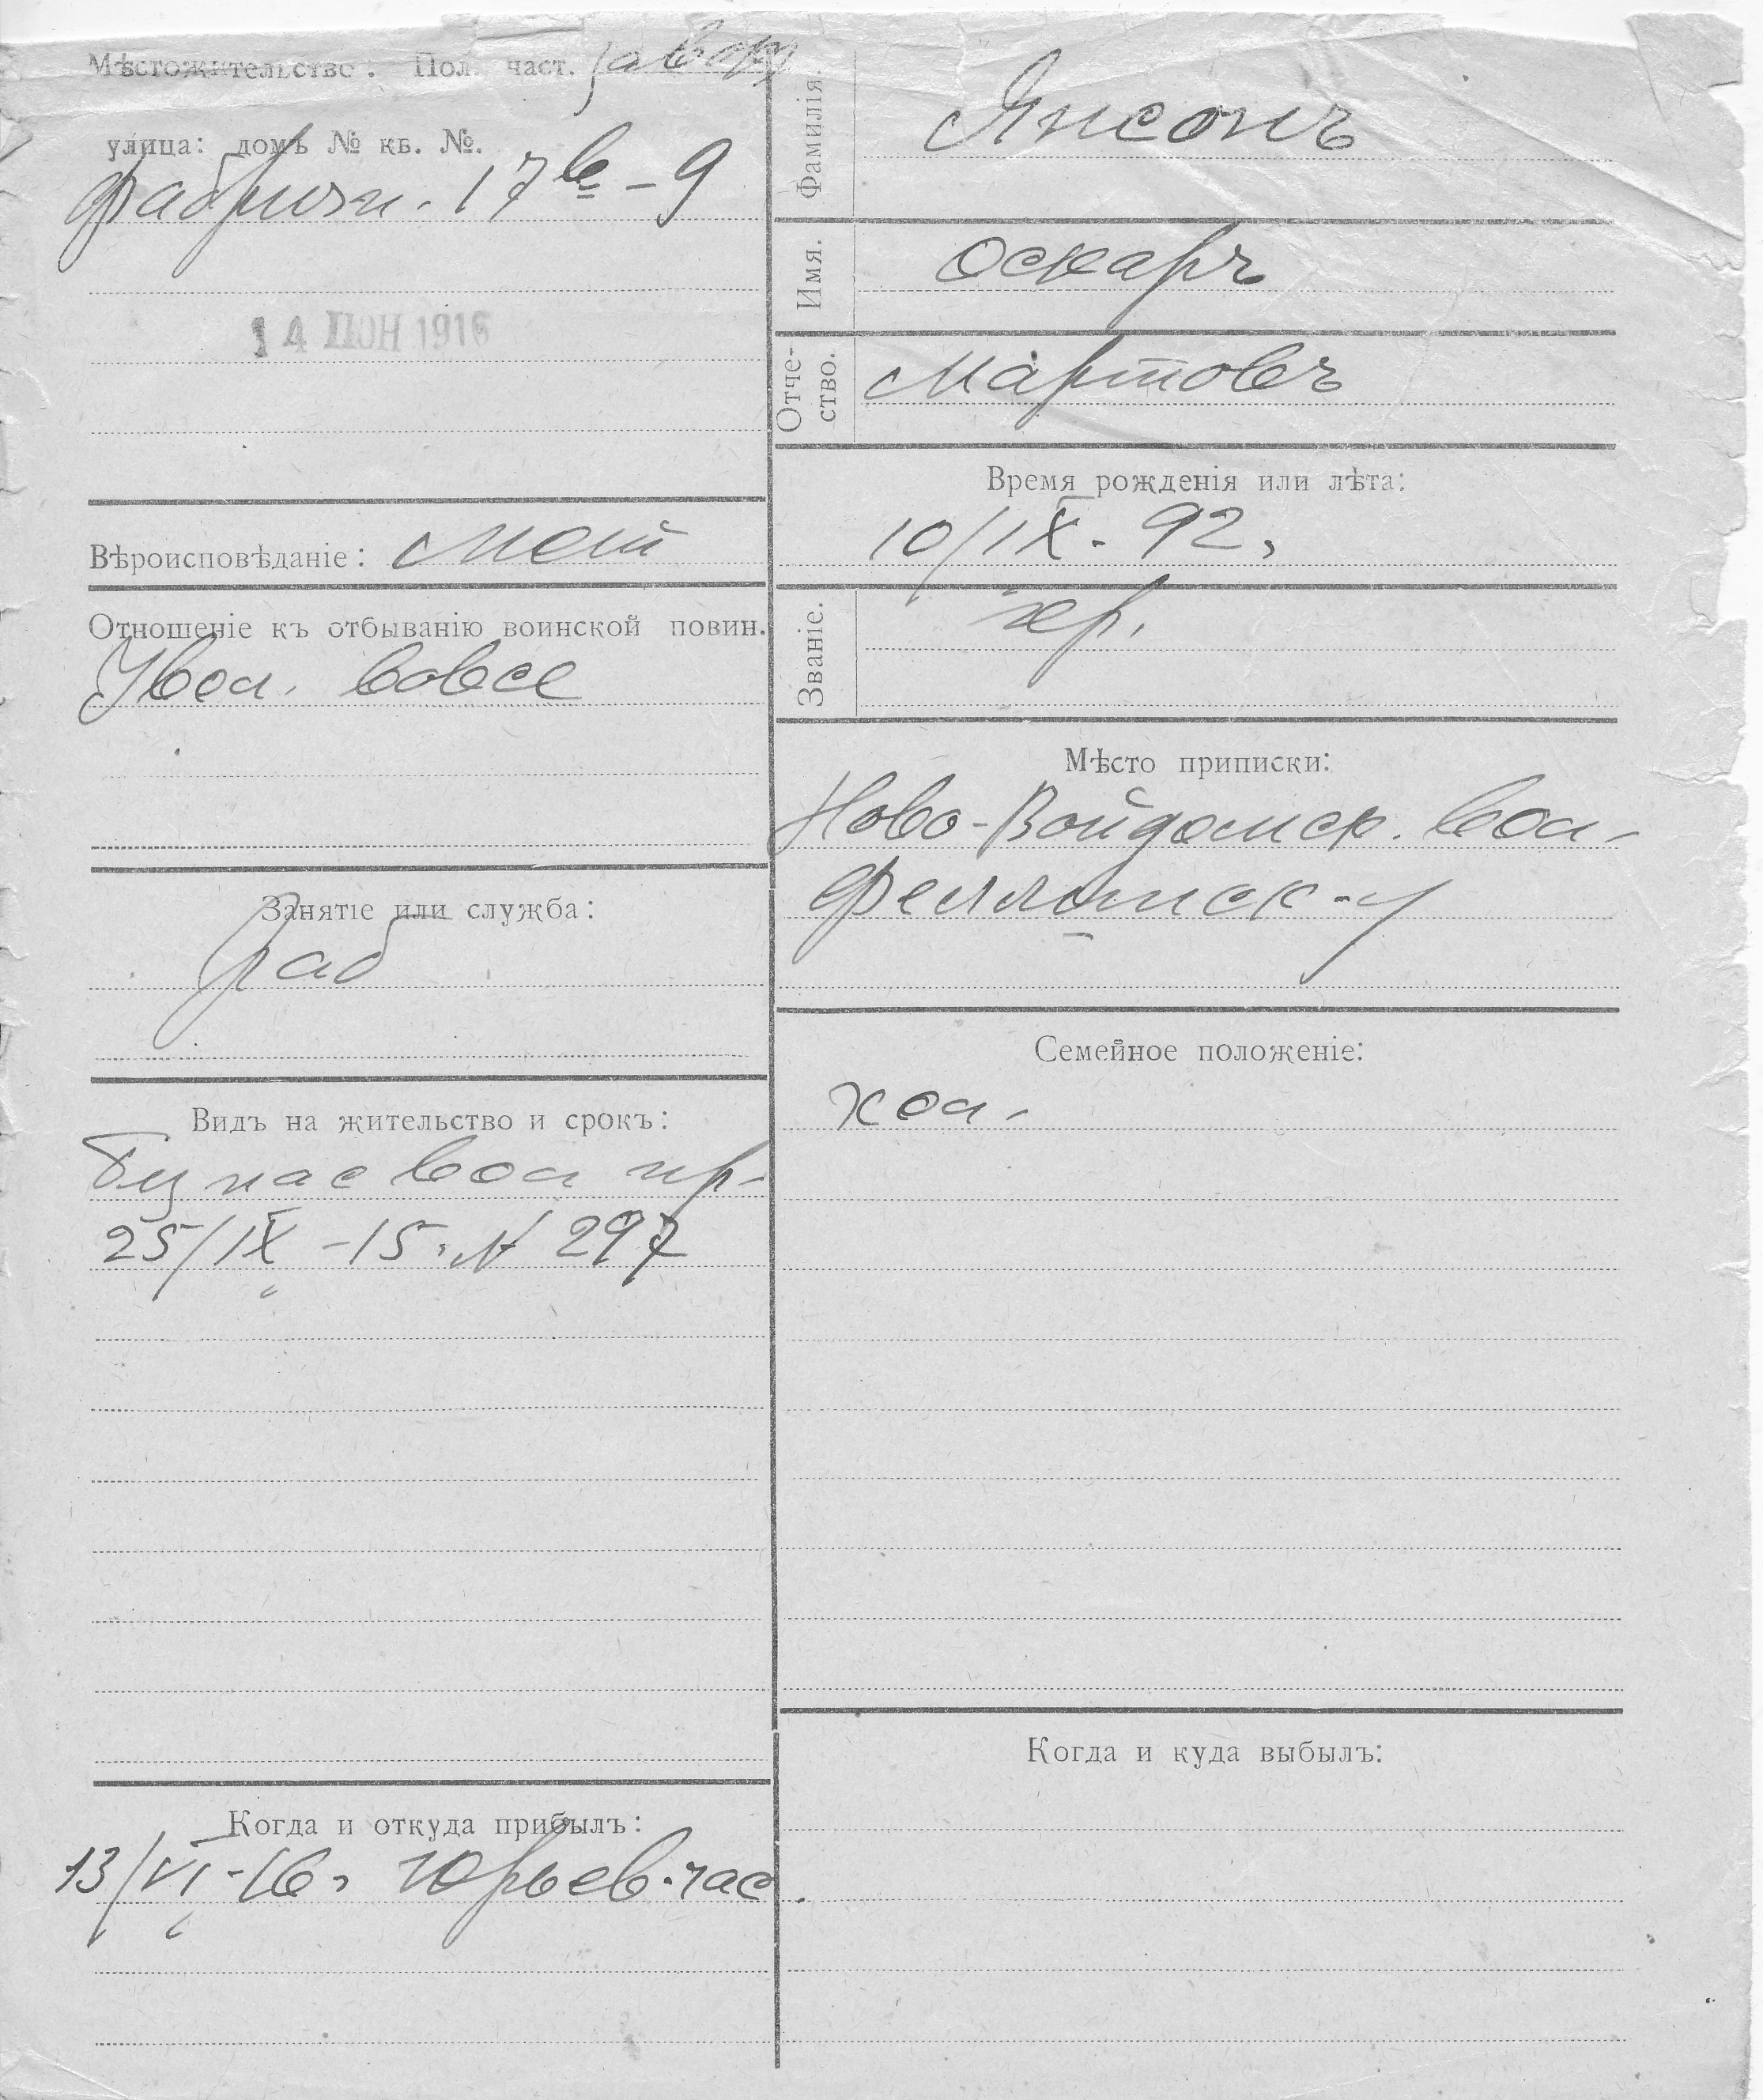 Мѣстожительство. Пол. част. завор
улица: домъ № кв. №.
Фабричн. 17в – 9
14 ІЮН 1916
Вѣроисповѣданіе: лют
Отношеніе къ отбыванію воинской повин.
Увол. вовсе
Занятіе или служба:
раб
Видъ на жительство и срокъ:
вол пр-
25/IX – 15. № 297
Когда и откуда прибылъ:
13/VI-16, Юрьев. час.
Фамилія. Янсонъ
Имя. Оскаръ
Отче-
ство. Мартовъ
Время рожденія или лѣта:
10/IX. 92,
Званіе. кр.
Мѣсто приписки:
Ново-Войдомск. вол-
Феллинск-у
Семейное положеніе:
хол.
Когда и куда выбылъ: